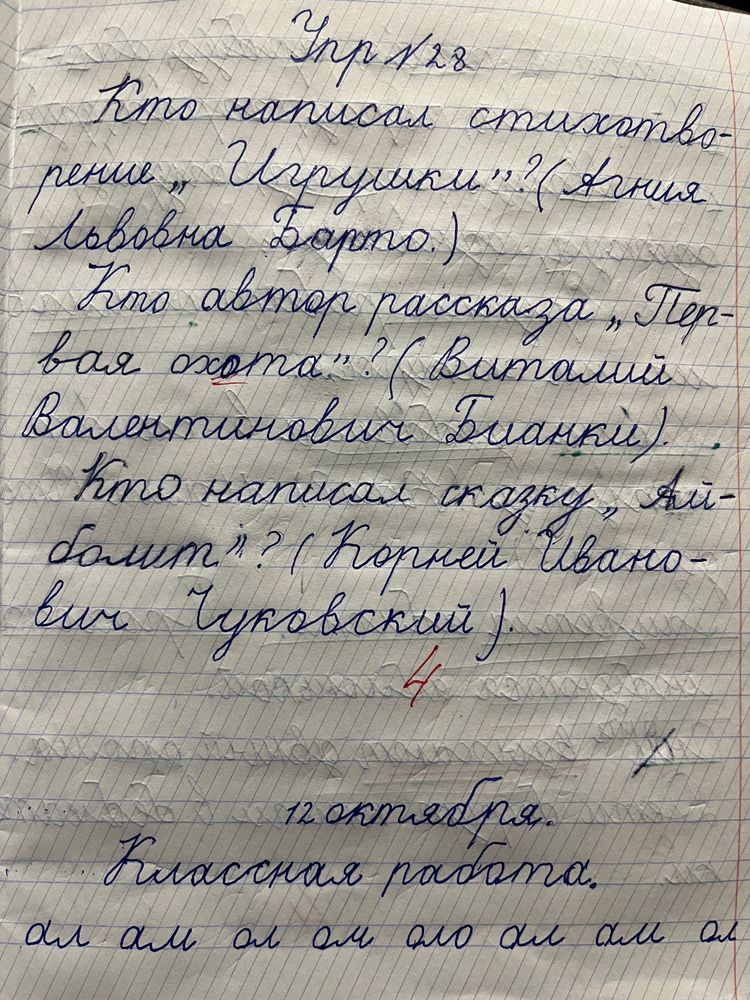 Упр №28
Кто написал стихотво-
рение „Игрушки"? (Агния
Львовна Барто.)
Кто автор рассказа „Пер-
вая охота"? (Виталий
Валентинович Бианки).
Кто написал сказку „Ай-
болит"? (Корней Ивано-
вич Чуковский).
4
12 октября.
Классная работа.
ал ам ол ом оло ал ам ол